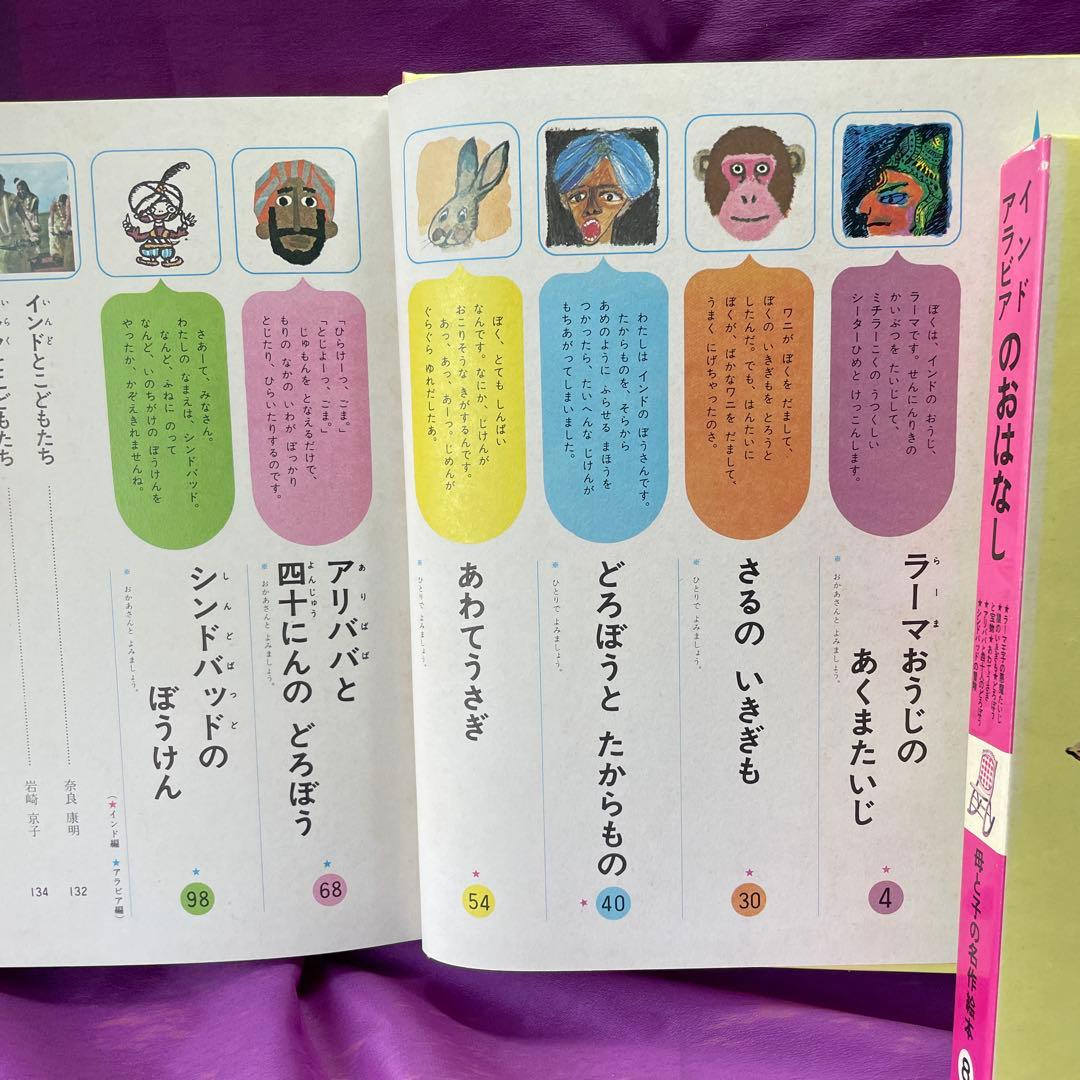 ぼくは、インドの おうじ、
ラーマです。せんにんりきの
かいぶつを たいじして、
ミチラーこくの うつくしい
シーターひめと けっこんします。
ラーマおうじの
らーま
あくまたいじ
※おかあさんと よみましょう。
★
4
ワニが ぼくを だまして、
ぼくの いきぎもを とろうと
したんだ。でも、はんたいに
ぼくが、ばかなワニを だまして、
うまく にげちゃったのさ。
さるの いきぎも
※ひとりで よみましょう。
★
30
わたしは インドの ぼうさんです。
たからものを、そらから
あめのように ふらせる まほうを
つかったら、たいへんな じけんが
もちあがってしまいました。
どろぼうと たからもの
※ひとりで よみましょう。
★
40
ぼく、とても しんぱい
なんです。なにか、じけんが
おこりそうな きがするんです。
あっ、あっ、あーっ。じめんが
ぐらぐら ゆれだしたあ。
あわてうさぎ
※ひとりで よみましょう。
★
54
「ひらけーっ、ごま。」
「とじよーっ、ごま。」
じゅもんを となえるだけで、
もりの なかの いわが ぽっかり
とじたり、ひらいたりするのです。
アリババと
ありばば
四十にんの どろぼう
よんじゅう
※おかあさんと よみましょう。
★
68
さあーて、みなさん。
わたしの なまえは、シンドバッド。
なんど、ふねに のって
なんど、いのちがけの ぼうけんを
やったか、かぞえきれませんね。
シンドバッドの
しんどばっど
ぼうけん
※おかあさんと よみましょう。
★
98
(★インド編 ★アラビア編)
インドとこどもたち
いんど
奈良 康明
132
とこどもたち
いらく
岩崎 京子
134
インド
アラビア のおはなし
★ラーマ王子の悪魔たいじ
★猿のいきぎも★どろぼう
と宝物★あわてうさぎ
★アリババと四十人のどろぼう
★シンドバッドの冒険
母と子の名作絵本
8